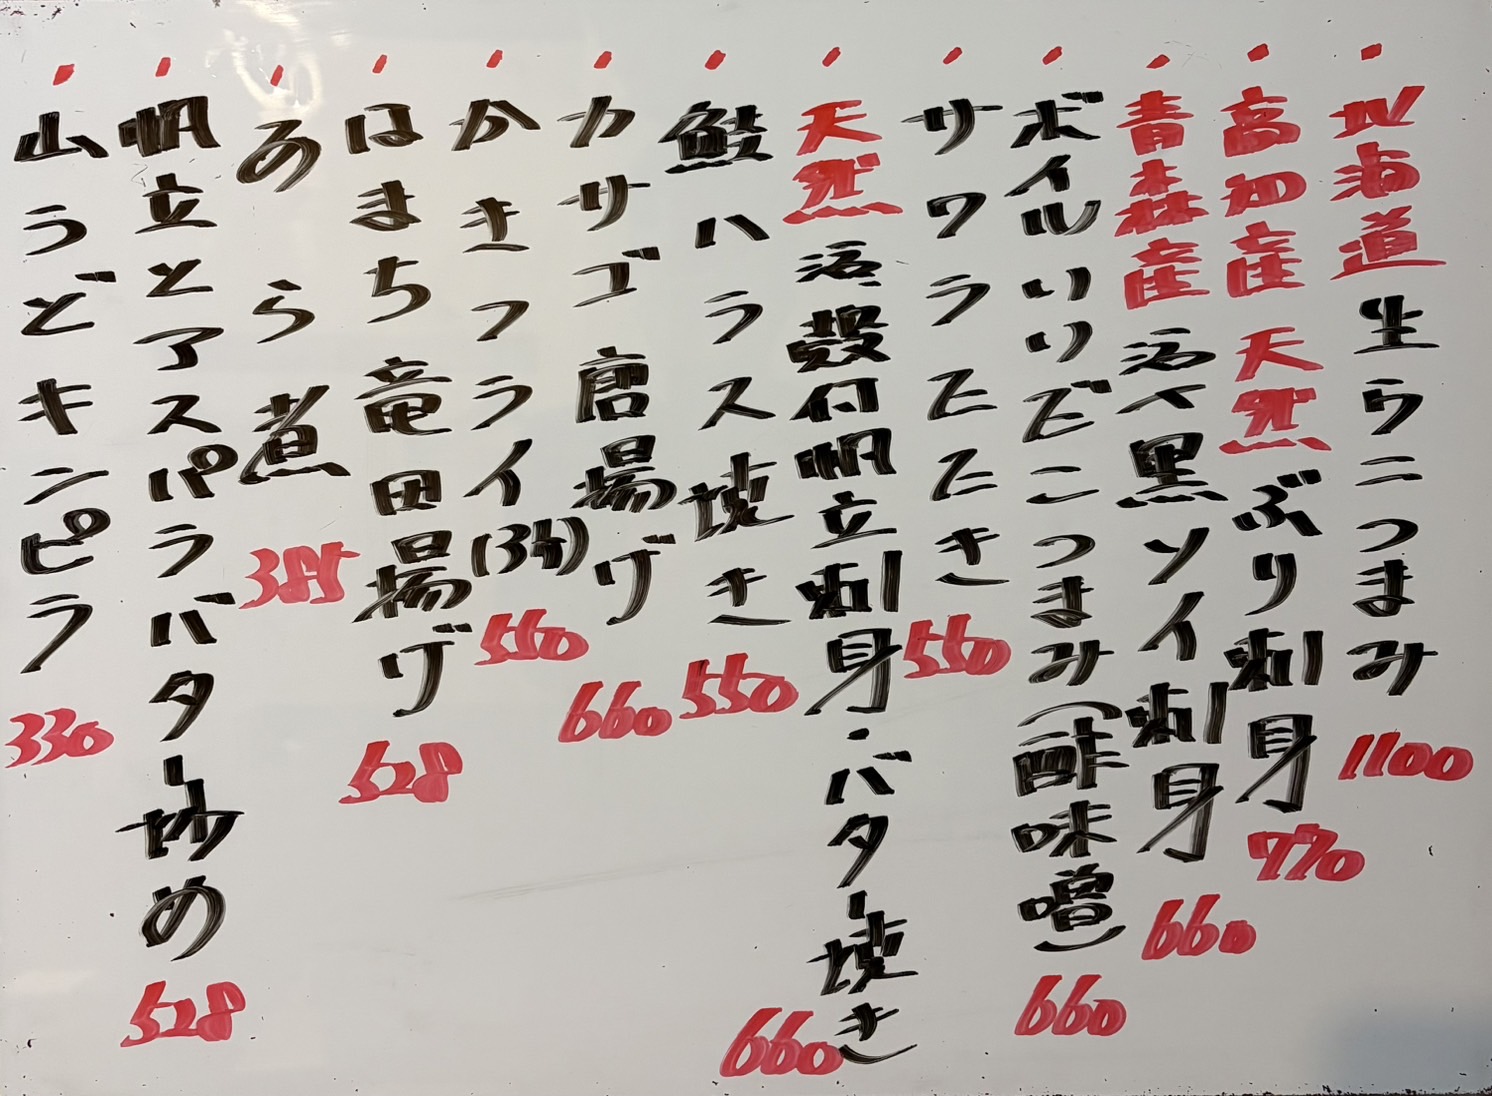 ・北海道生ウニつまみ 1100
・高知産天然ぶり刺身 770
・青森産活〆黒ソイ刺身 660
・ボイルいいだこつまみ(酢味噌) 660
・サワラたたき 550
・天然活殻付帆立刺身・バター焼き 660
・鮭ハラス焼き 550
・カサゴ唐揚げ 660
・かきフライ(3ケ) 550
・はまち竜田揚げ 528
・あら煮 385
・帆立とアスパラバター炒め 528
・山うどキンピラ 330